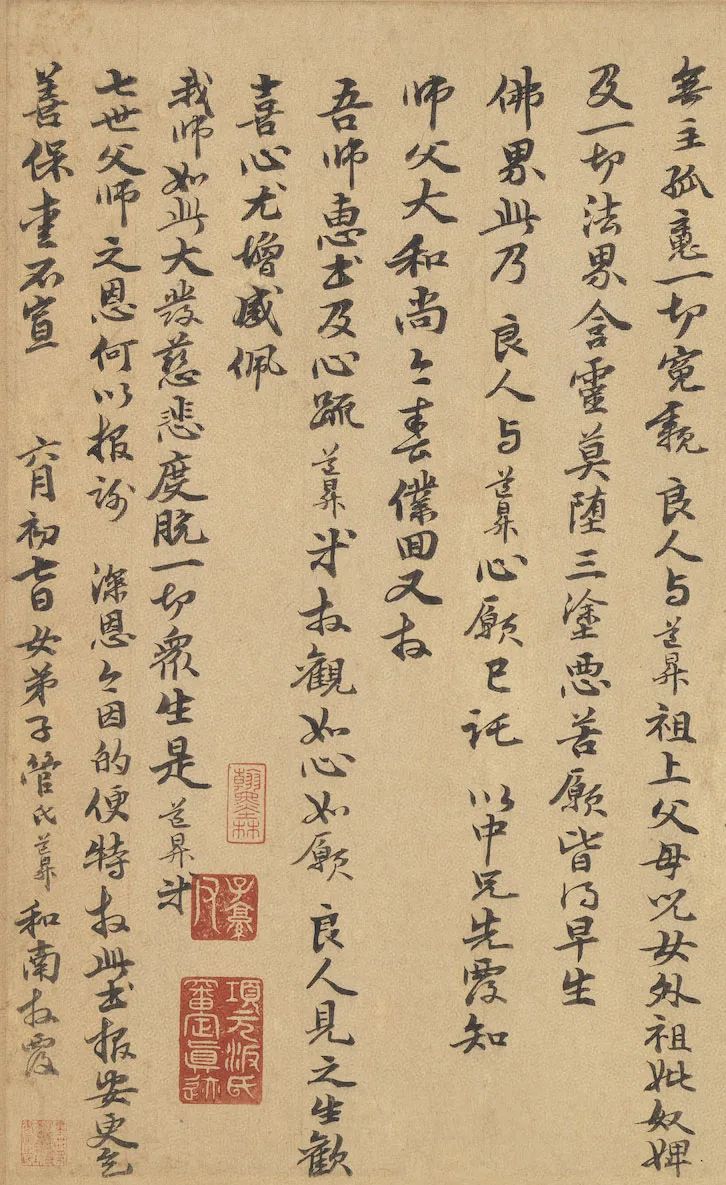 無主孤魂一切冤親 良人与道昇祖上父母兒女外祖妣奴婢
及一切法界含靈莫墮三塗惡苦願皆得早生
佛界此乃 良人与道昇心願已託 以中兄先覆知
師父大和尚今春僕回又拜
吾師惠書及心疏道昇等拜觀如心如願 良人見之生歡
喜心尤增感佩
我師如此大發慈悲度脫一切眾生是道昇等
七世父師之恩何以報謝 深恩今因的便特拜此書報安更乞
善保重不宣 六月初七日女弟子管氏道昇和南拜覆
項元汴氏審定真迹